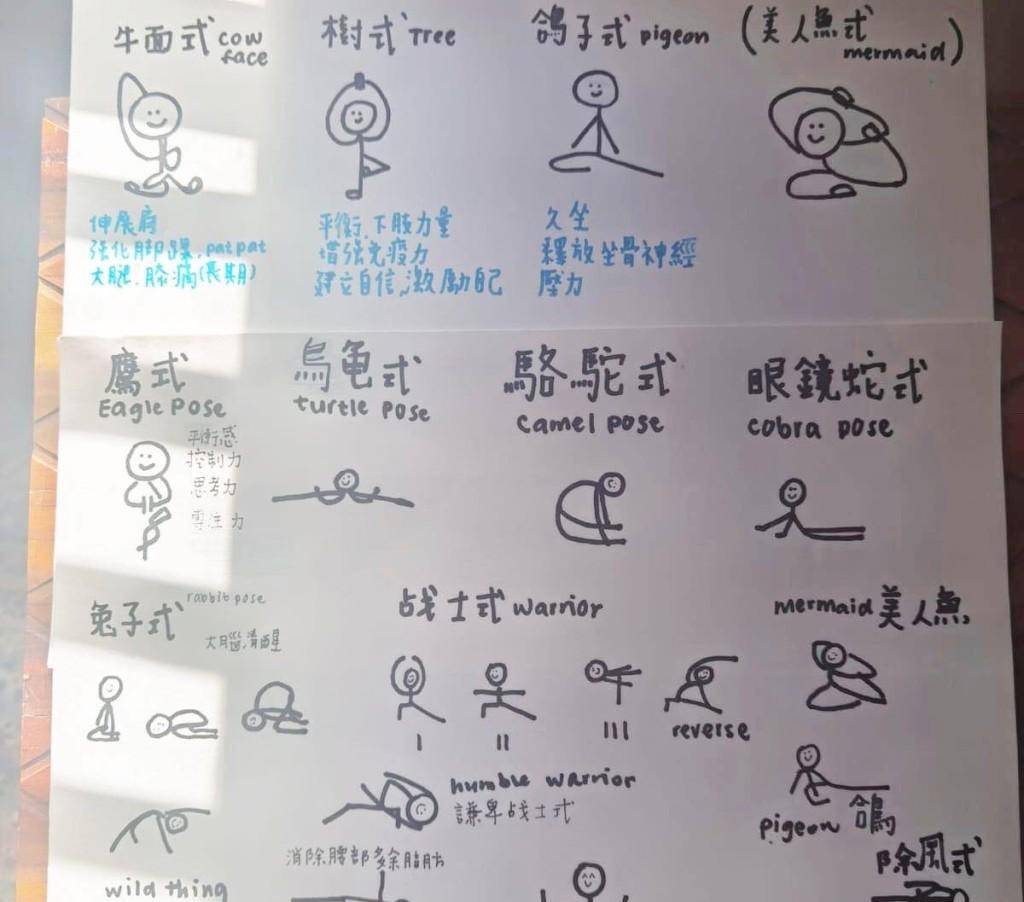 牛面式 cow face
樹式 Tree
鴿子式 pigeon
(美人魚式 mermaid)
伸展肩
强化脚踝, pat pat
大腿.膝痛(長期)
平衡.下肢力量
增强免疫力
建立自信,激励自己
久坐
釋放坐骨神經
壓力
鷹式
Eagle Pose
平衡感
控制力
思考力
專注力
烏龟式
turtle pose
駱駝式
camel pose
眼鏡蛇式
cobra pose
兔子式 rabbit pose
大腦清醒
战士式 warrior
I
II
III
reverse
mermaid 美人魚
humble warrior
謙卑战士式
pigeon 鴿
消除腰部多余脂肪
wild thing
除風式